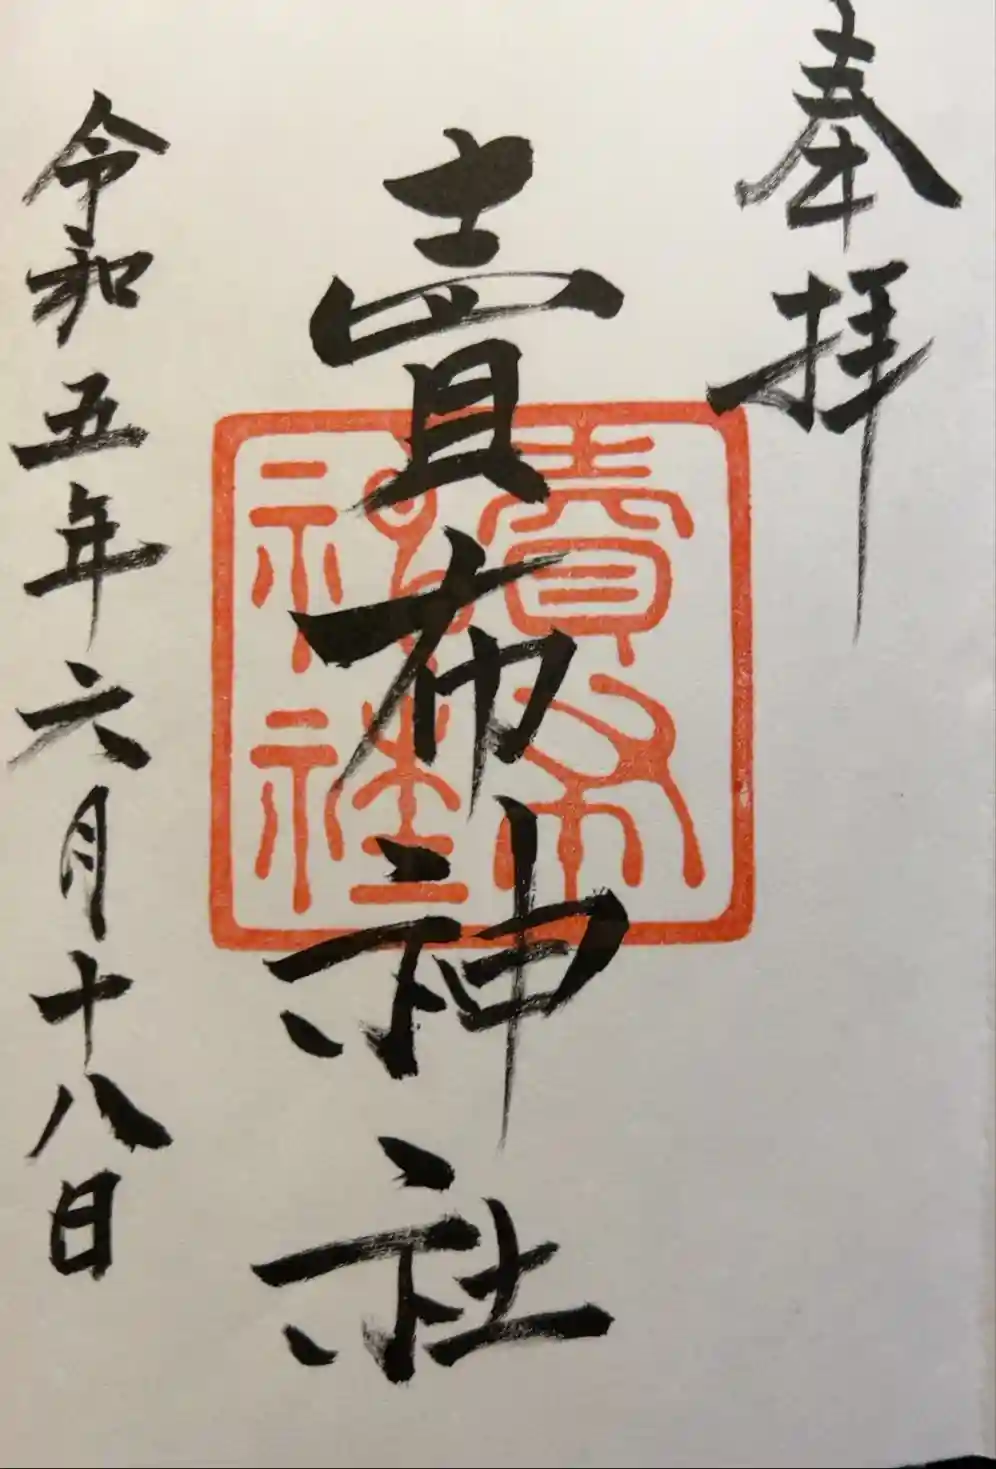 奉拝
賣布神社
賣布
神社
令和五年六月十八日